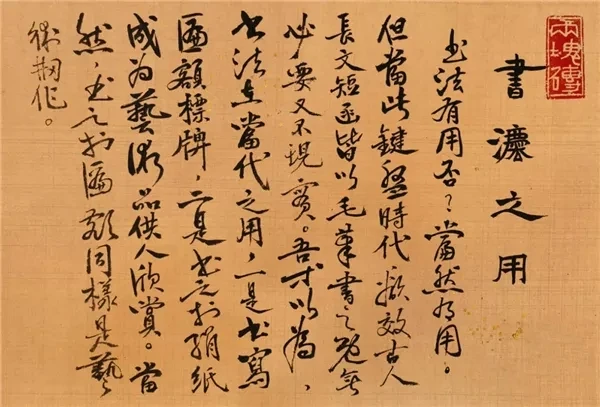 書灋之用
书法有用否?當然有用。
但當此鍵盤時代欲效古人
長文短函皆以毛筆書之既無
必要又不現實。吾以為、
书法在當代之用,一是书寫
匾額標牌,二是书之於絹紙
成为藝術品供人欣賞。當
然,书之於匾額同樣是藝
術創作。